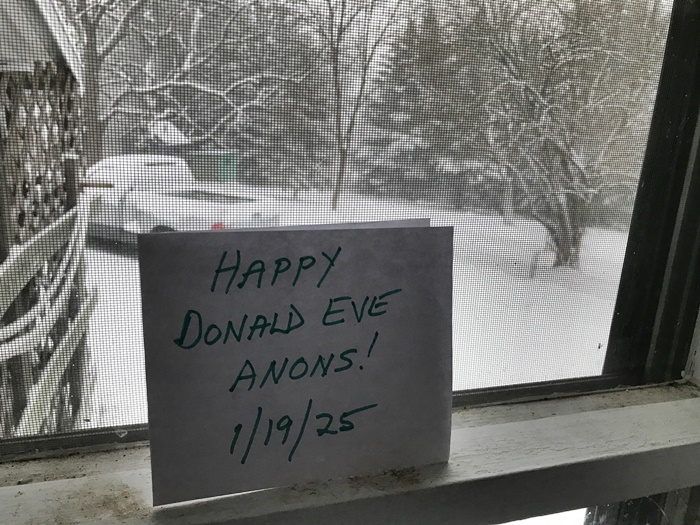 HAPPY
DONALD EVE
ANONS!
1/19/25